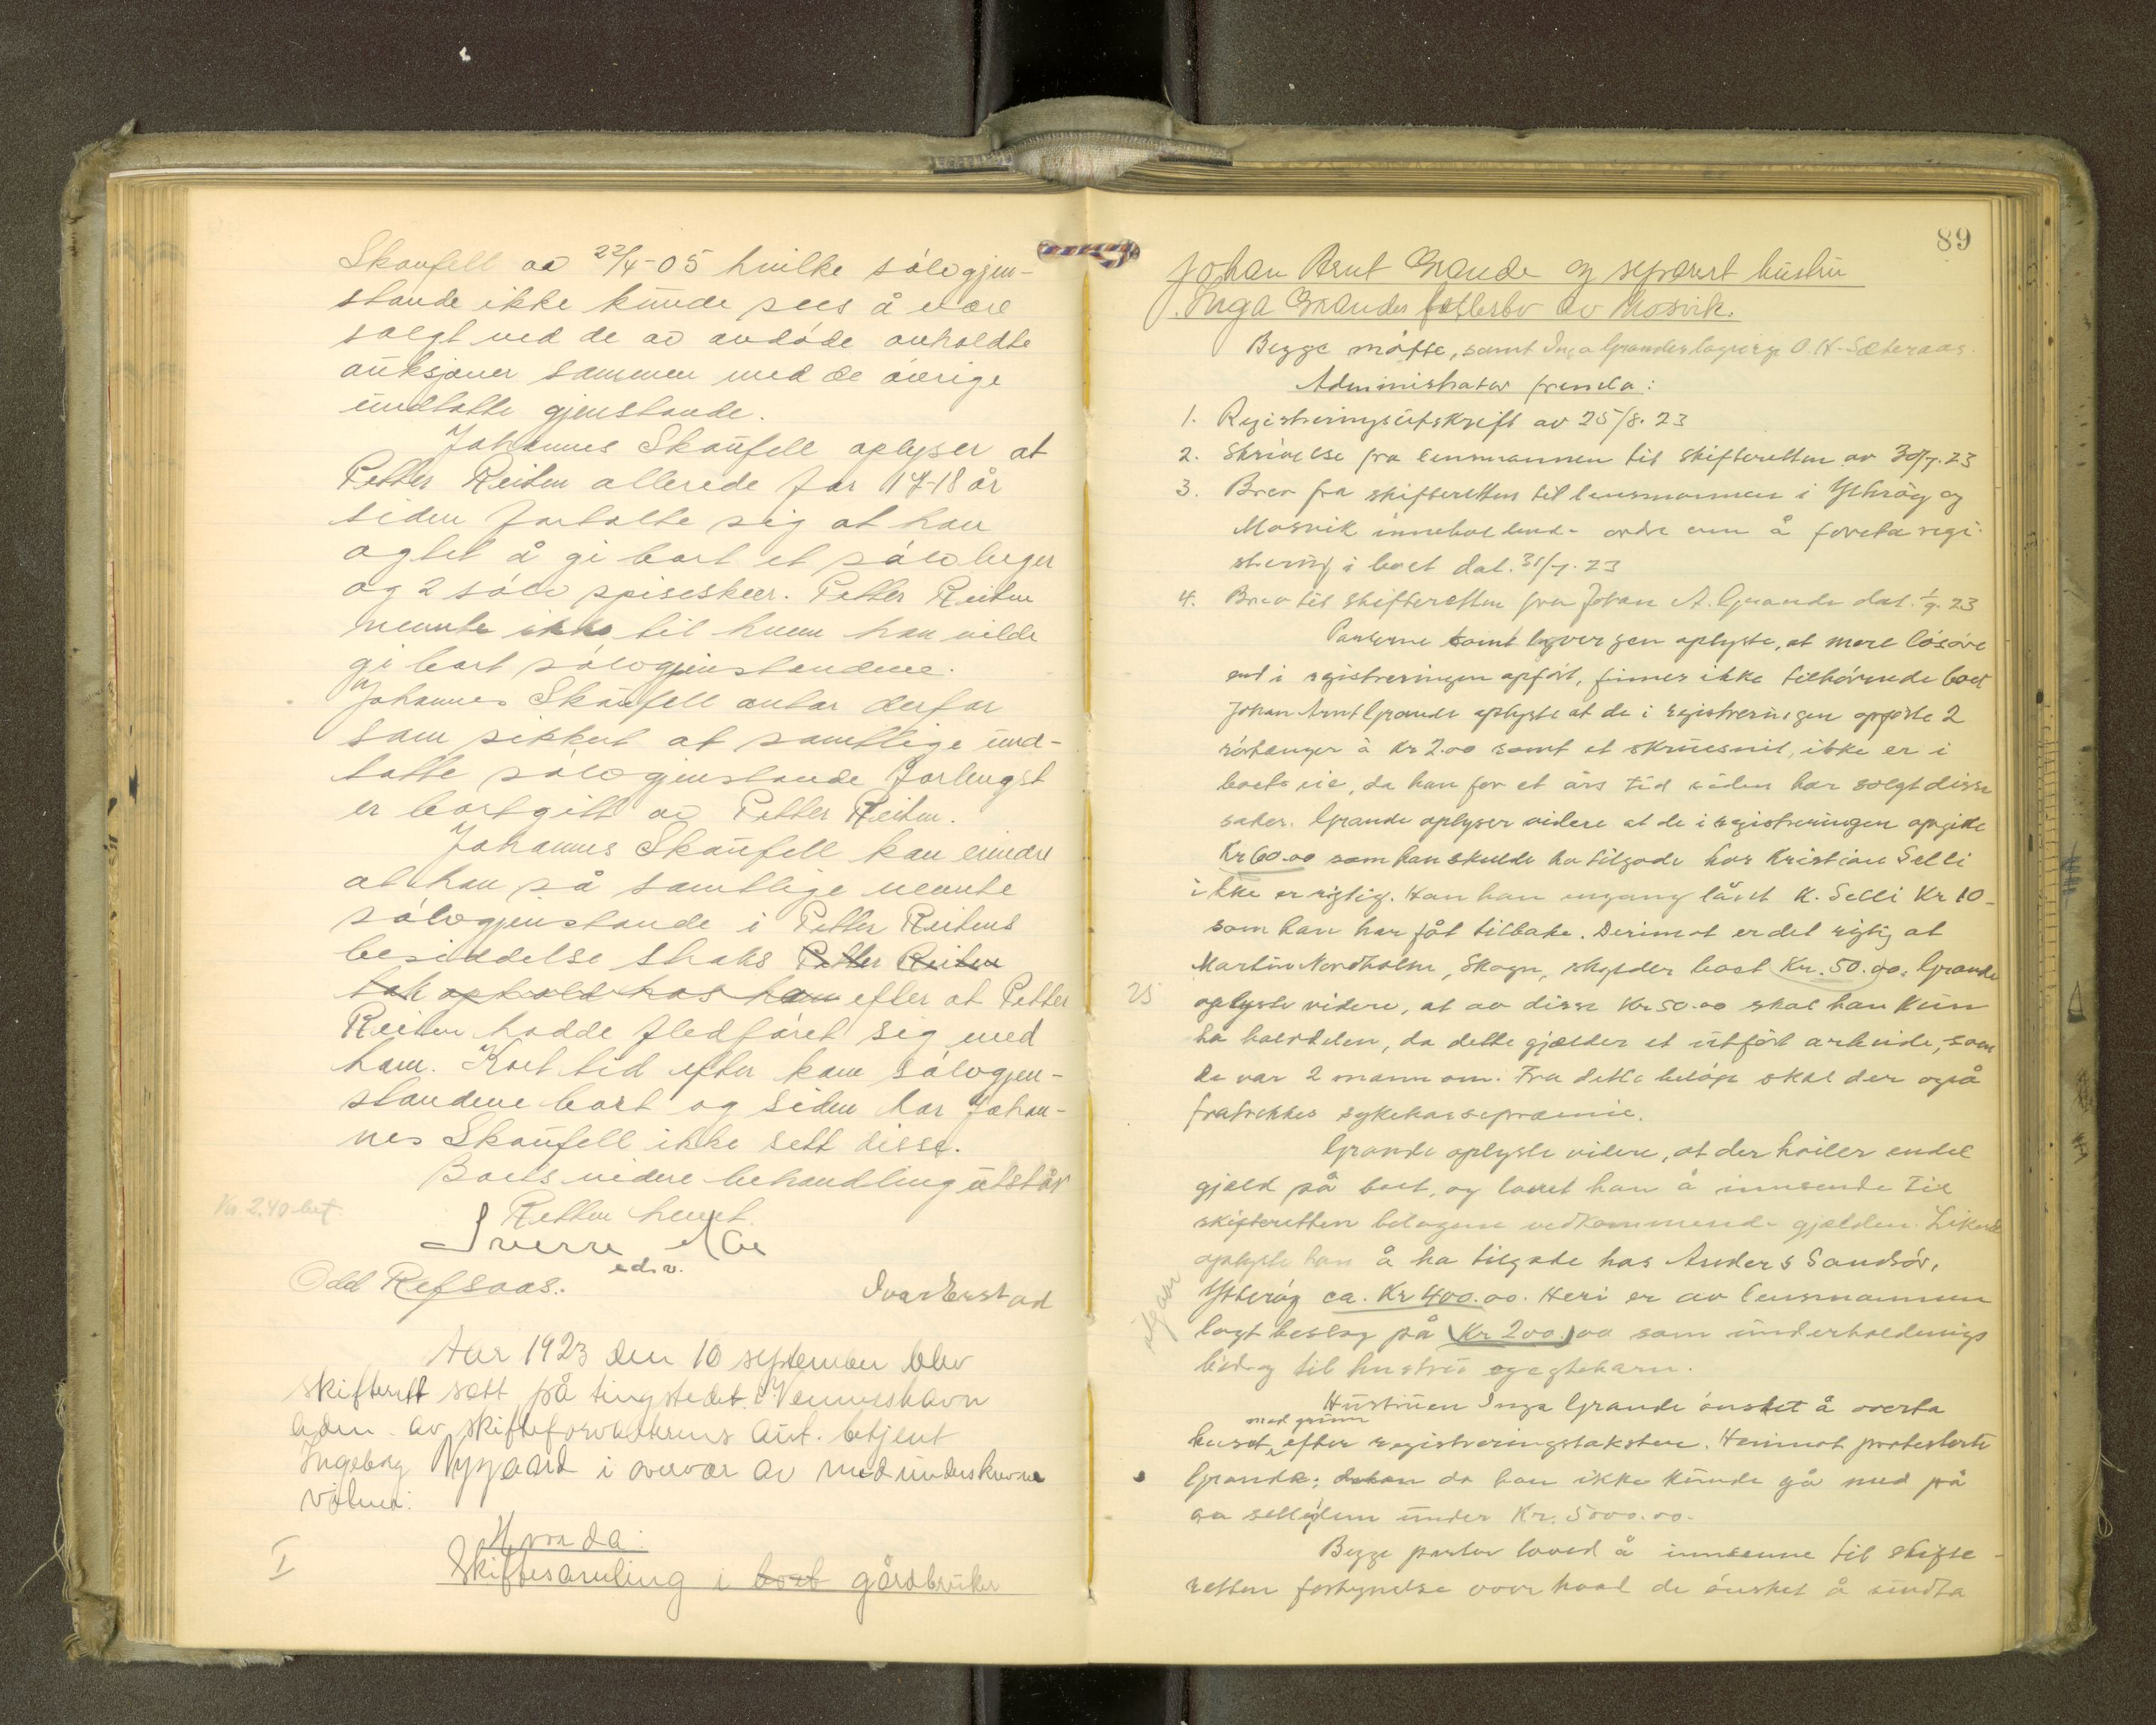 Skaufell av 22/4-05 hvilke sølvgjen-
stande ikke kunde sees å være
solgt ved de av avdøde avholdte
auksjoner sammen med de øvrige
undtatte gjenstande.
Johannes Skaufell oplyser at
Petter Reiten allerede for 17-18 år
siden fortalte sig at han
agtet å gi bort et sølvbeger
og 2 sølv spiseskeer. Petter Reiten
nevnte ikke til hvem han vilde
gi bort sølvgjenstandene.
Johannes Skaufell antar derfor
som sikkert at samtlige und-
tatte sølvgjenstande forlengst
er bortgitt av Petter Reiten.
Johannes Skaufell kan erindre
at han så samtlige nevnte
sølvgjenstande i Petter Reitens
besiddelse straks Petter Reiten
tok ophold hos ham efter at Petter
Reiten hadde fledføret sig med
ham. Kort tid efter kom sølvgjen-
standene bort og siden har Johan-
nes Skaufell ikke sett disse.
Boets videre behandling utstår
Kr. 2.40 bet.
Retten hevet.
Sverre Moe
edsv.
Odd Refsaas.
Ivar Erstad
Aar 1923 den 10 september blev
skifterett satt på tingstedet i Venneshavn
adm. av skifteforvalterens aut. betjent
Ingeborg Nygaard i overvær av medunderskrevne
vidner:
Hvorda:
I
Skiftesamling i boet gårdbruker
89
Johan Arnt Grande og separert hustru
Inga Grandes fellesbo av Mosvik.
Begge møtte, samt Inga Grandes lagverge O. H. Sæteraas.
Administrator fremla:
1. Registreringsutskrift av 25/8. 23
2. Skrivelse fra lensmannen til skifteretten av 30/7. 23
3. Brev fra skifteretten til lensmannen i Ytterøy og
Mosvik inneholdende ordre om å foreta regi-
strering i boet dat. 31/7. 23
4. Brev til skifteretten fra Johan A. Grande dat. 1/9. 23
Partene samt lagvergen oplyste, at mere løsøre
end i registreringen opført, finnes ikke tilhørende boet
Johan Arnt Grande oplyste at de i registreringen opførte 2
rørtenger à Kr 2.00 samt et skruesnit, ikke er i
boets eie, da han for et års tid siden har solgt disse
saker. Grande oplyser videre at de i registreringen opgitte
Kr 60.00 som han skulde ha tilgode hos Kristian Selli
ikke er rigtig. Han har engang lånt K. Selli Kr 10-
som han har fåt tilbake. Derimot er det rigtig at
Martin Nordholm, Skogn, skylder boet Kr. 50.00. Grande
25
oplyste videre, at av disse Kr 50.00 skal han kun
ha halvdelen, da dette gjælder et utført arbeide, som
de var 2 mann om. Fra dette beløp skal der også
fratrekkes sykekassepræmie.
Grande oplyste videre, at der hviler endel
gjæld på boet, og lovet han å innsende til
skifteretten bilagene vedkommende gjælden. Likeså
oplyste han å ha tilgode hos Anders Sandsør,
Ytterøy ca. Kr 400.00. Heri er av lensmannen
utgaar
lagt beslag på Kr 200.00 som underholdnings
bidrag til hustru og egtebarn.
Hustruen Inga Grande ønsket å overta
med grunn
huset efter registreringstaksten. Herimot protesterte
Grande; da han ikke kunde gå med på
aa selle dem under Kr. 5000.00.
Begge parter loved å innsenne til skifte-
retten fortegnelse over hvad de ønsket å undta